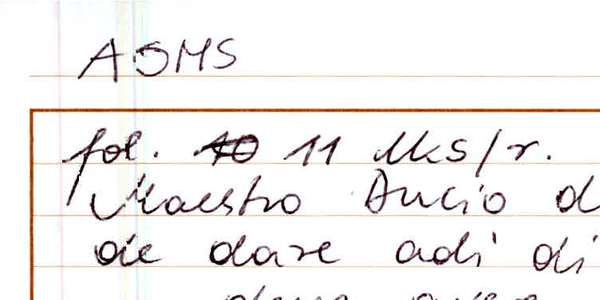 ASMS
fol. 11 Mks/r.
Maestro Ducio d
de dare adi di